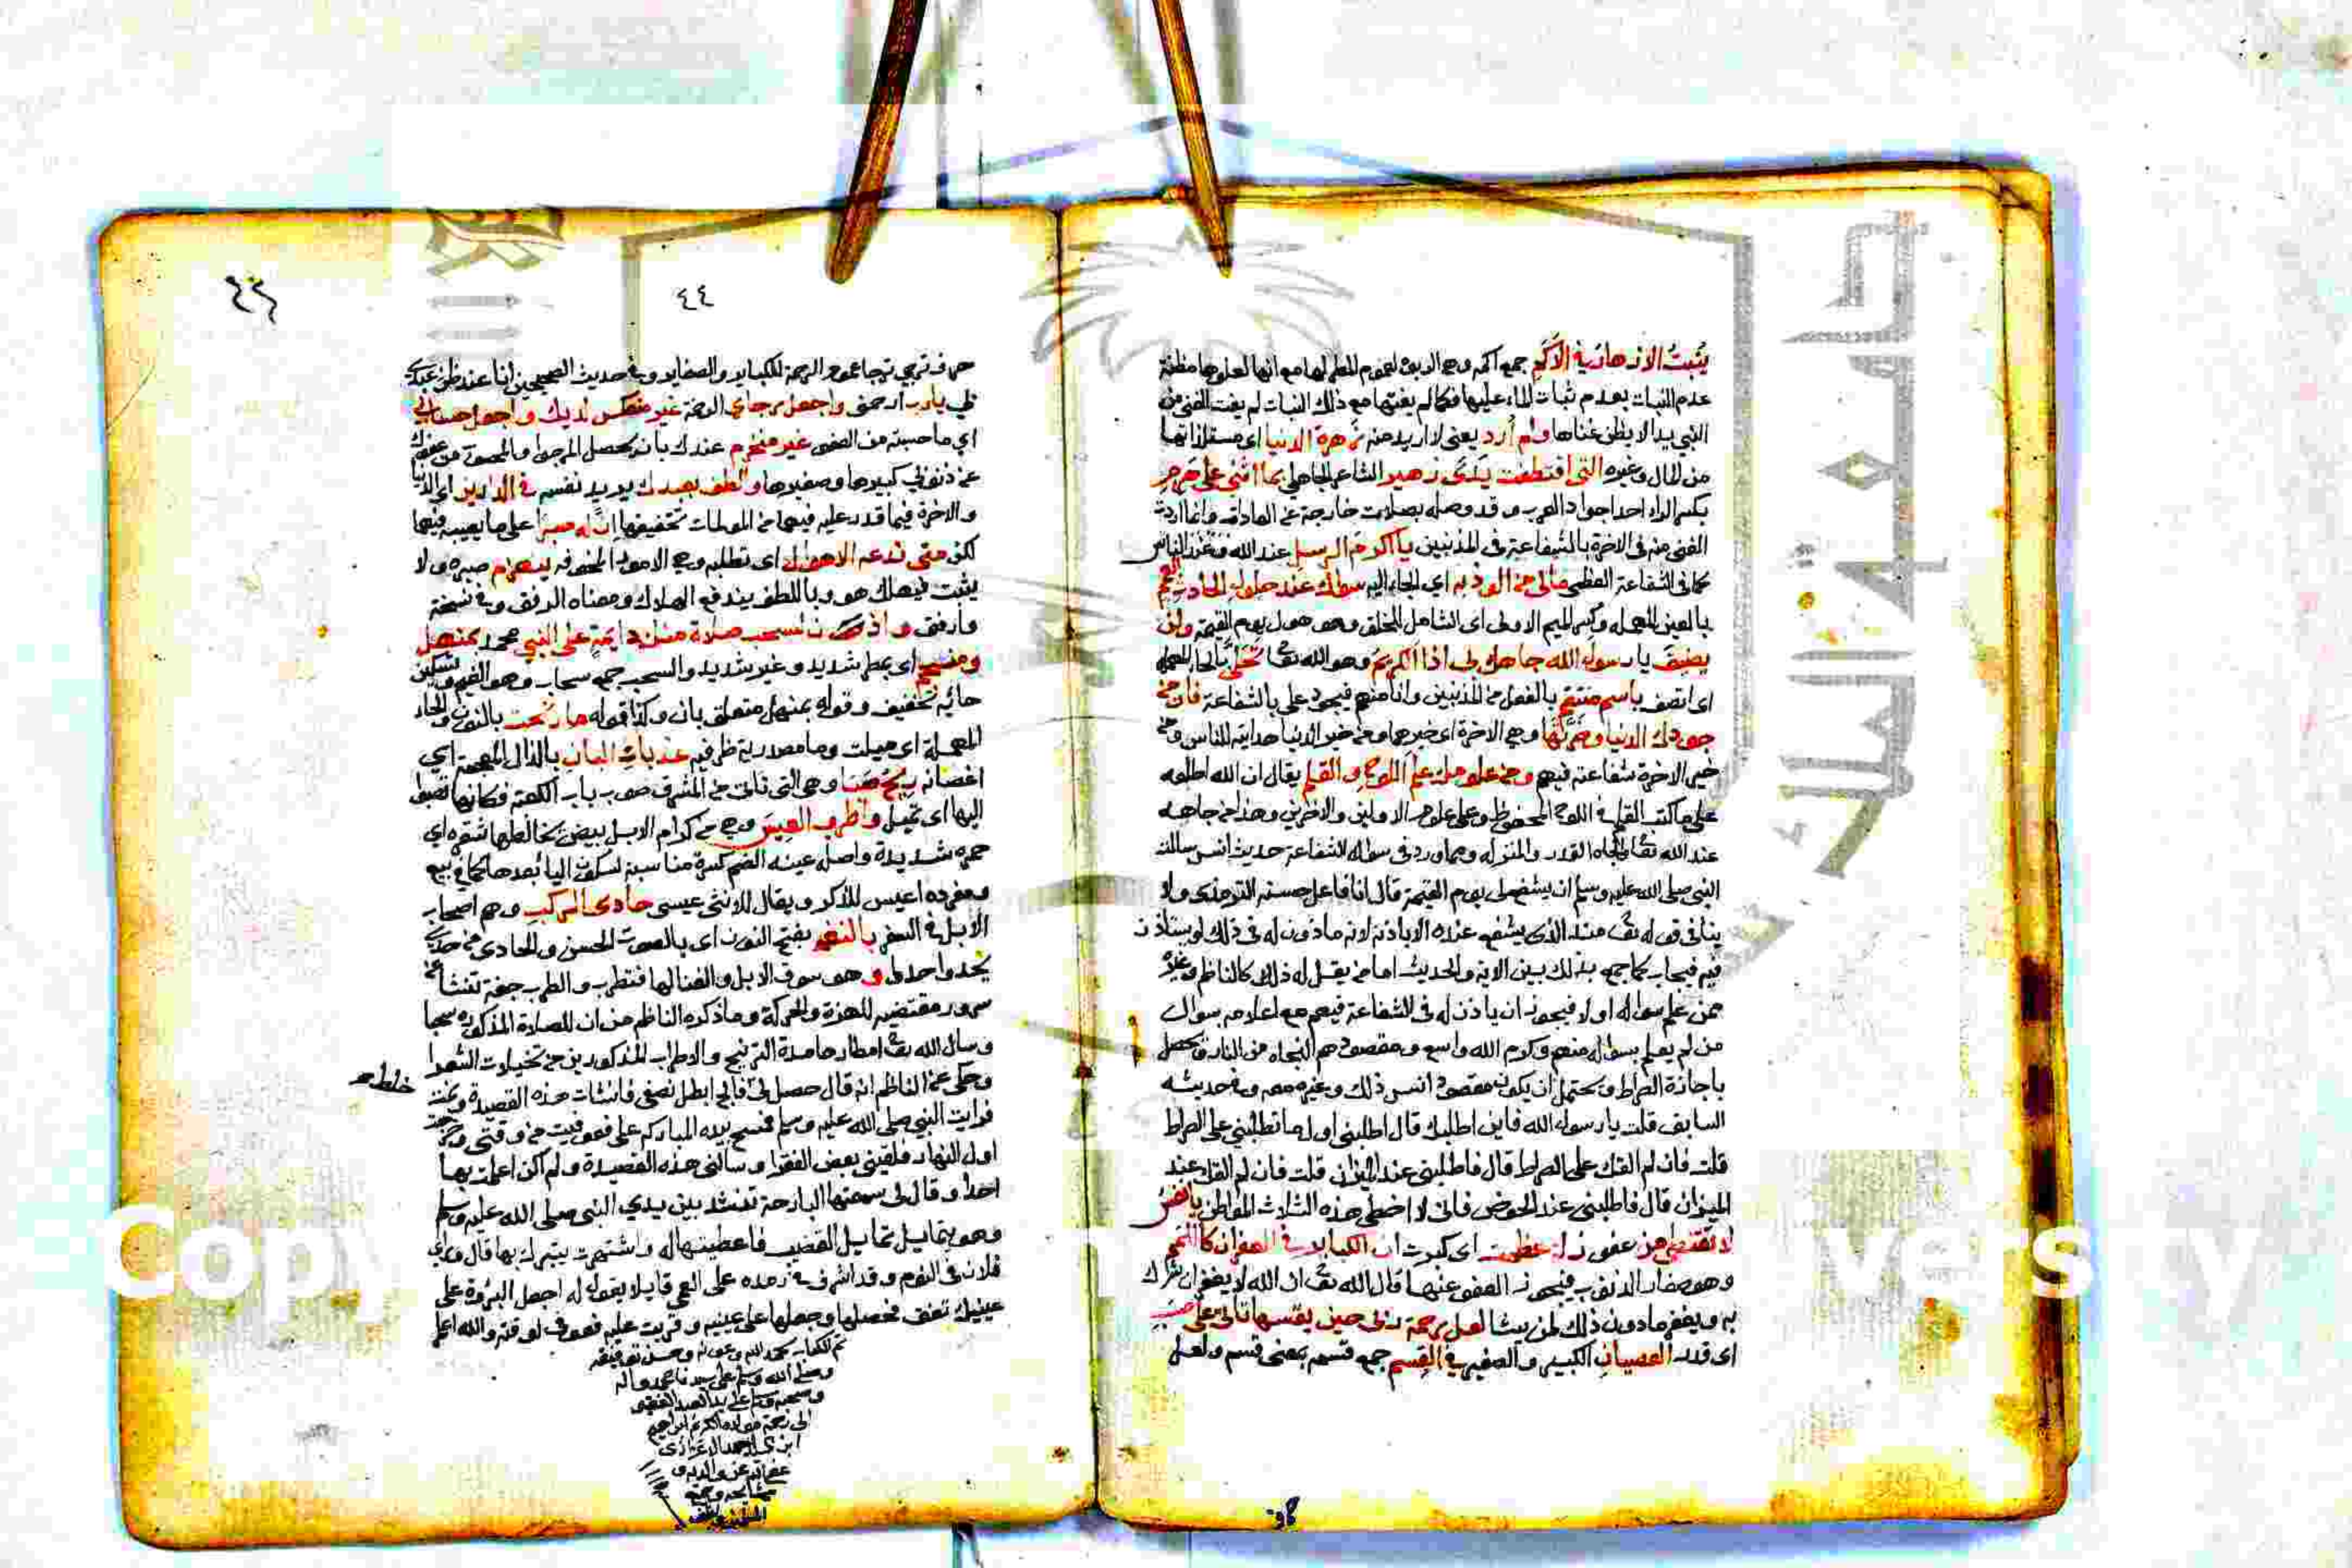 يُنبتُ الازهار في الاكم جمع اكمة وهي الربوة لعموم المطر لها مع انها لعلوها مظنة
عدم النبات بعدم ثبات الماء عليها فكما لم يفتها مع ذلك النبات لم يفت الغنى من
النبي يدا لا يظن غناها ولم أرد يعني لا اريد منه زهرة الدنيا اي مستلذاتها
من المال وغيره التي اقتطفت يَدَى زهير الشاعر الجاهلي بما اثنى على هرم
بكسر الراء احد اجواد العرب وقد وصله بصلات خارجة عن العادة وانما اردت
الغنى منه في الاخرة بالشفاعة في المذنبين يا اكرم الرسل عند الله وعند الناس
كما في الشفاعة العظمى مالي من الوذ به اي الجا اليه سواك عند حلول الحادث العمم
بالعين المهملة وكسر الميم الاولى اي الشامل للخلق وهو هول يوم القيمة ولن
يضيقَ يا رسول الله جاهك بي اذا الكريم وهو الله تعا تحلى بالحاء المهملة
اي اتصف باسم منتقم بالفعل من المذنبين وانا منهم فيجود علي بالشفاعة فان من
جودك الدنيا وضرتها وهي الاخرة اي خيرهما ومن خير الدنيا هدايته للناس ومن
خير الاخرة شفاعته فيهم ومن علومك علم اللوح والقلم يقال ان الله اطلعه
على ما كتب القلم في اللوح المحفوظ وعلى علوم الاولين والاخرين وهذا من جاهه
عند الله تعا والجاه القدر والمنزله ومما ورد في سواله الشفاعة حديث انس سالت
النبي صلى الله عليه وسلم ان يشفع لي يوم القيمة قال انا فاعل حسنه الترمذي ولا
ينافي قوله تع من ذا الذي يشفع عنده الا باذنه لانه ماذون له في ذلك او يستاذن
فيه فيجاب كما جمع بذلك بين الاية والحديث اما من يقل له ذلك كالناظم وغيره
ممن علم سواله اولا فيجوز ان ياذن له في الشفاعة فيهم مع اعلامه بسوال
من لم يعلم بسواله منهم وكرم الله واسع ومقصودهم النجاه من النار وتحصل
باجازة الصراط ويحتمل ان يكون مقصود انس ذلك وغيره معه وفي حديثه
السابق قلت يا رسول الله فاين اطلبك قال اطلبني اول ما تطلبني على الصراط
قلت فان لم القك على الصراط قال فاطلبني عند الميزان قلت فان لم القك عند
الميزان قال فاطلبني عند الحوض فاني لا اخطي هذه الثلاث المواطن يا نفس
لا تقنطي من عفو زلة عظمت اي كبرت ان الكباير في الغفران كاللمم
وهو صغار الذنوب فيجوز العفو عنها قال الله تع ان الله لا يغفر ان يشرك
به ويغفر ما دون ذلك لمن يشا لعل رحمة ربي حين يقسمها تاتي على حسب
اي قدر العصيان الكبير والصغير في القسم جمع قسمه بمعنى قسم ولعل
٤٤
حرف ترجي ترجا عموم الرحمة للكباير والصغاير وفي حديث الصحيحين انا عند ظن عبدي
بي يارب ارحمني واجعل رجاي الرحمة غير منعكس لديك واجعل حسابي
اي ما حسبته من العفو غير منخرم عندك بان يحصل المرجو والمحسوب من عفوك
عن ذنوبي كبيرها وصغيرها والطف بعبدك يريد نفسه في الدارين اي الدنيا
والاخرة فيما قدر عليه فيهما من المولمات تخفيفها ان له صبرا على ما يصيبه فيهما
لكن متى تدعه الاهوال اي تطلبه وهي الامور المخوفه ينهزم صبره ولا
يثبت فيهلك هو وباللطف يندفع الهلاك ومعناه الرفق وفي نسخة
وارفق واذن لسحب صلاة منك دايمة على النبي محمد بمنهل
ومنسجم اي بمطر شديد وغير شديد والسحب جمع سحاب وهو الغيم وتسكين
حائه تخفيف وقوله بمنهل متعلق باذن وكذا قوله ما رنحت بالنون والحاء
المهملة اي ميلت وما مصدرية ظرفيه عذبات البان بالذال المعجمة اي
اغصانه ريح صبا وهي التي تاتي من المشرق صوب باب الكعبة فكانها تصبو
اليها اي تميل واطرب العيس وهي من كرام الابل بيض يخالطها شقرة اي
حمرة شديدة واصل عينه الضم كسرة مناسبة لسكون اليا بعدها كما في بيع
ومفرده اعيس للذكر ويقال للانثى عيسى حادي الركب وهم اصحاب
الابل في السفر بالنغم بفتح النون اي بالصوت الحسن والحادي من حدا
يحدوا حدوا وهو سوق الابل والغنا لها فتطرب والطرب خفة تنشأ عن
سرور مقتضيه للهزة والحركة وما ذكره الناظم من ان للصلاة المذكورة سحبا
وسال الله تع امطارها مدة الترنيح والاطراب المذكورين من تخيلات الشعرا
وحكى عن الناظم انه قال حصل لي فالج ابطل نصفي فانشات هذه القصيدة ونمت
فرايت النبي صلى الله عليه وسلم فمسح بيده المباركة علي فعوفيت من وقتي وخرجت
اول النهار فلقيني بعض الفقرا وسالني هذه القصيدة ولم اكن اعلمت بها
احدا وقال لي سمعتها البارحة تنشد بين يدي النبي صلى الله عليه وسلم
وهو يتمايل تمايل القضيب فاعطيتها له واشتهرت يتبرك بها قال ورأي
فلان في النوم وقد اشرف في رمده على العمي قايلا يقول له اجعل البردة على
عينيك تعف فحصلها وجعلها على عينيه وقريت عليه فعوفي لوقته والله اعلم
تم الكتاب بحمد الله وعونه وحسن توفيقه
وصلى الله وسلم على سيدنا محمد واله
وصحبه وسلم على يد العبد الفقير
الى رحمة مولاه الكريم ابراهيم
عفا الله عنه وعن والديه